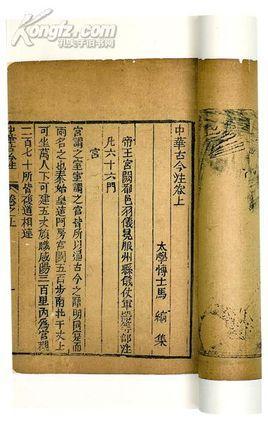 Kongfz.com
孔夫子旧书网
中華古今注卷上
太學博士馬縞集
帝王宮闕都邑羽儀冕服州縣儀仗軍
凡六十六門
宮
宮謂之室室謂之宮皆所以通古今之語明同實而
兩名之也秦始皇造阿房宮闕五百步南北千丈上
可坐萬人下可建五丈旗幟咸陽二百里內為宮觀
二百七十所皆複道相連
中華古今注 卷之上